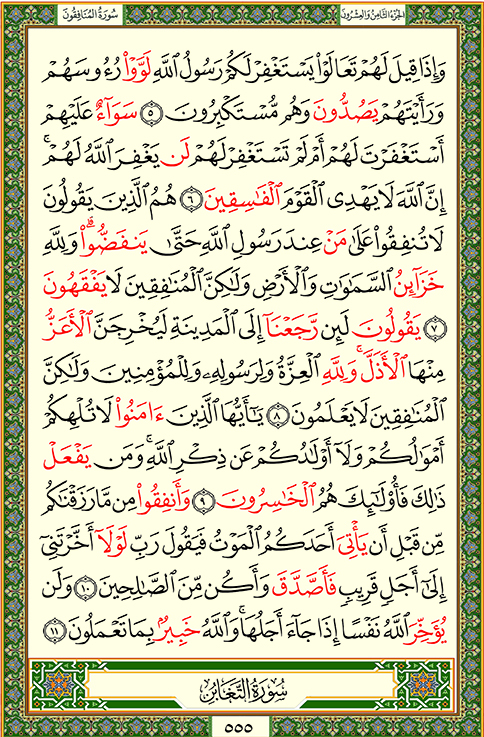 الجزء الثامن والعشرون
سورة المنافقون
وَإِذَا قِيلَ لَهُمْ تَعَالَوْا۟ يَسْتَغْفِرْ لَكُمْ رَسُولُ ٱللَّهِ لَوَّوْا۟ رُءُوسَهُمْ
وَرَأَيْتَهُمْ يَصُدُّونَ وَهُم مُّسْتَكْبِرُونَ ٥ سَوَآءٌ عَلَيْهِمْ
أَسْتَغْفَرْتَ لَهُمْ أَمْ لَمْ تَسْتَغْفِرْ لَهُمْ لَن يَغْفِرَ ٱللَّهُ لَهُمْ ۚ
إِنَّ ٱللَّهَ لَا يَهْدِى ٱلْقَوْمَ ٱلْفَٰسِقِينَ ٦ هُمُ ٱلَّذِينَ يَقُولُونَ
لَا تُنفِقُوا۟ عَلَىٰ مَنْ عِندَ رَسُولِ ٱللَّهِ حَتَّىٰ يَنفَضُّوا۟ ۗ وَلِلَّهِ
خَزَآئِنُ ٱلسَّمَٰوَٰتِ وَٱلْأَرْضِ وَلَٰكِنَّ ٱلْمُنَٰفِقِينَ لَا يَفْقَهُونَ
٧ يَقُولُونَ لَئِن رَّجَعْنَآ إِلَى ٱلْمَدِينَةِ لَيُخْرِجَنَّ ٱلْأَعَزُّ
مِنْهَا ٱلْأَذَلَّ ۚ وَلِلَّهِ ٱلْعِزَّةُ وَلِرَسُولِهِۦ وَلِلْمُؤْمِنِينَ وَلَٰكِنَّ
ٱلْمُنَٰفِقِينَ لَا يَعْلَمُونَ ٨ يَٰٓأَيُّهَا ٱلَّذِينَ ءَامَنُوا۟ لَا تُلْهِكُمْ
أَمْوَٰلُكُمْ وَلَآ أَوْلَٰدُكُمْ عَن ذِكْرِ ٱللَّهِ ۚ وَمَن يَفْعَلْ
ذَٰلِكَ فَأُو۟لَٰٓئِكَ هُمُ ٱلْخَٰسِرُونَ ٩ وَأَنفِقُوا۟ مِن مَّا رَزَقْنَٰكُم
مِّن قَبْلِ أَن يَأْتِىَ أَحَدَكُمُ ٱلْمَوْتُ فَيَقُولَ رَبِّ لَوْلَآ أَخَّرْتَنِىٓ
إِلَىٰٓ أَجَلٍ قَرِيبٍ فَأَصَّدَّقَ وَأَكُن مِّنَ ٱلصَّٰلِحِينَ ١٠ وَلَن
يُؤَخِّرَ ٱللَّهُ نَفْسًا إِذَا جَآءَ أَجَلُهَا ۚ وَٱللَّهُ خَبِيرٌۢ بِمَا تَعْمَلُونَ ١١
سورة التغابن
٥٥٥